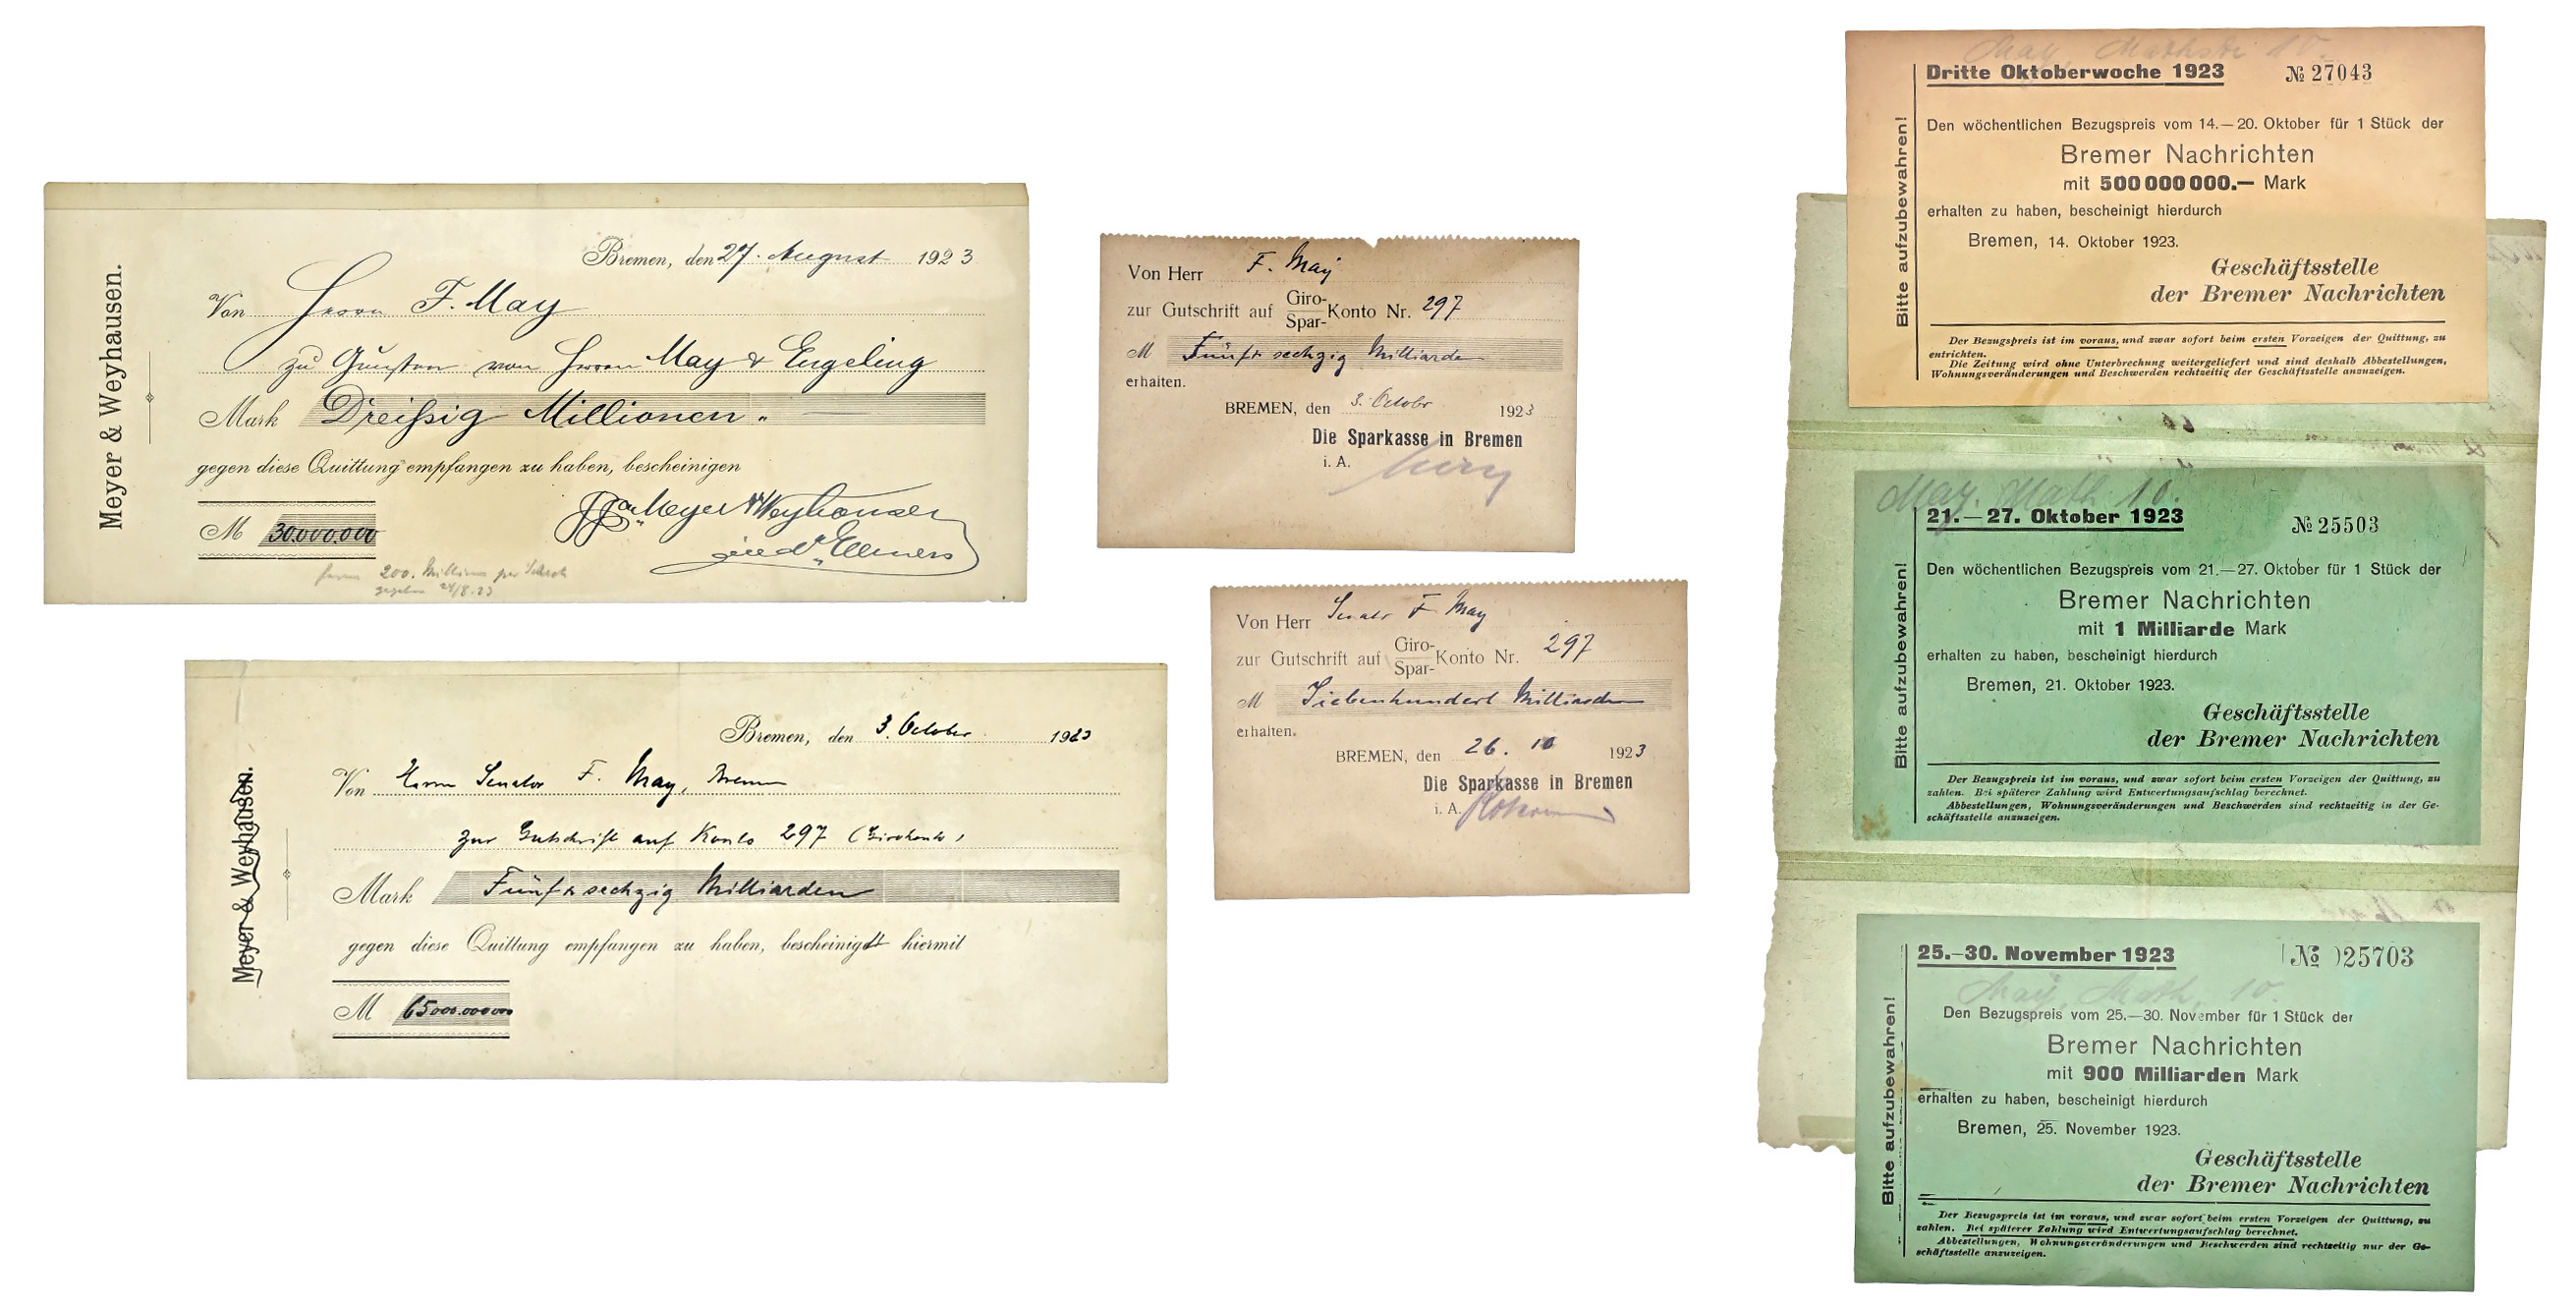 Meyer & Weyhausen.
Bremen, den 27. August 1923
Von Herrn F. May
zu Gunsten von Herren May & Engeling
Mark Dreißig Millionen „
gegen diese Quittung empfangen zu haben, bescheinigen
M 30.000.000
ppa Meyer & Weyhausen
200. Millionen per Scheck
gegeben 24/8.23
Meyer & Weyhausen.
Bremen, den 3. October 1923
Von Herrn Senator F. May, Bremen
zur Gutschrift auf Konto 297 (Girokonto)
Mark Fünf & sechzig Milliarden
gegen diese Quittung empfangen zu haben, bescheinigt hiermit
M 65000.000000
Von Herr F. May
zur Gutschrift auf Giro-Spar-Konto Nr. 297
M Fünf & sechzig Milliarden
erhalten.
BREMEN, den 3. Octobr 1923
Die Sparkasse in Bremen
i. A.
Von Herr Senator F. May
zur Gutschrift auf Giro-Spar-Konto Nr. 297
M Siebenhundert Milliarden
erhalten.
BREMEN, den 26. 10 1923
Die Sparkasse in Bremen
i. A.
Bitte aufzubewahren!
May, Mathstr 10.
Dritte Oktoberwoche 1923 № 27043
Den wöchentlichen Bezugspreis vom 14.—20. Oktober für 1 Stück der
Bremer Nachrichten
mit 500 000 000.— Mark
erhalten zu haben, bescheinigt hierdurch
Bremen, 14. Oktober 1923.
Geschäftsstelle
der Bremer Nachrichten
Der Bezugspreis ist im voraus, und zwar sofort beim ersten Vorzeigen der Quittung, zu
entrichten.
Die Zeitung wird ohne Unterbrechung weitergeliefert und sind deshalb Abbestellungen,
Wohnungsveränderungen und Beschwerden rechtzeitig der Geschäftsstelle anzuzeigen.
Bitte aufzubewahren!
May. Math. 10.
21.—27. Oktober 1923 № 25503
Den wöchentlichen Bezugspreis vom 21.—27. Oktober für 1 Stück der
Bremer Nachrichten
mit 1 Milliarde Mark
erhalten zu haben, bescheinigt hierdurch
Bremen, 21. Oktober 1923.
Geschäftsstelle
der Bremer Nachrichten
Der Bezugspreis ist im voraus, und zwar sofort beim ersten Vorzeigen der Quittung, zu
zahlen. Bei späterer Zahlung wird Entwertungsaufschlag berechnet.
Abbestellungen, Wohnungsveränderungen und Beschwerden sind rechtzeitig in der Ge-
schäftsstelle anzuzeigen.
Bitte aufzubewahren!
25.—30. November 1923 № 25703
May, Math. 10.
Den Bezugspreis vom 25.—30. November für 1 Stück der
Bremer Nachrichten
mit 900 Milliarden Mark
erhalten zu haben, bescheinigt hierdurch
Bremen, 25. November 1923.
Geschäftsstelle
der Bremer Nachrichten
Der Bezugspreis ist im voraus, und zwar sofort beim ersten Vorzeigen der Quittung, zu
zahlen. Bei späterer Zahlung wird Entwertungsaufschlag berechnet.
Abbestellungen, Wohnungsveränderungen und Beschwerden sind rechtzeitig nur der Ge-
schäftsstelle anzuzeigen.